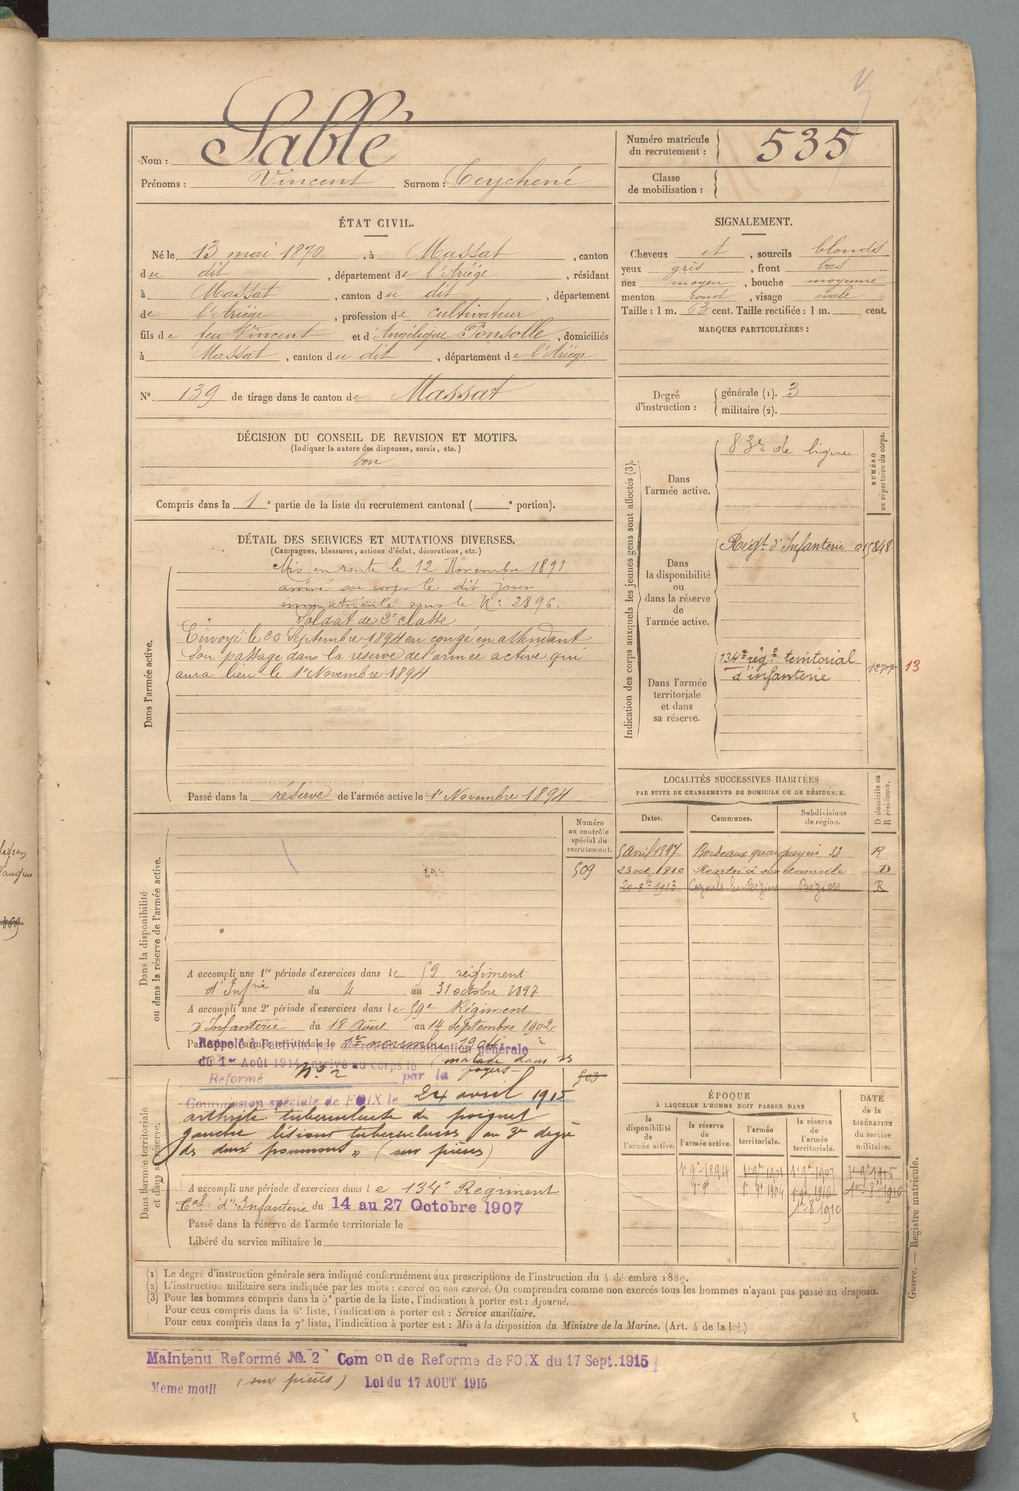 Nom : Sablé
Prénoms : Vincent Surnom : Teychené
Numéro matricule du recrutement : 535
Classe de mobilisation :
ÉTAT CIVIL.
Né le 13 mai 1870, à Massat, canton
du dit, département de l'Ariège, résidant
à Massat, canton du dit, département
de l'Ariège, profession de cultivateur
fils de feu Vincent et d'Angélique Ponsolle, domiciliés
à Massat, canton du dit, département de l'Ariège
N° 139 de tirage dans le canton de Massat
SIGNALEMENT.
Cheveux et, sourcils blonds
yeux gris, front bas
nez moyen, bouche moyenne
menton rond, visage ovale
Taille : 1 m. 63 cent. Taille rectifiée : 1 m. cent.
MARQUES PARTICULIÈRES :
Degré d'instruction : générale (1). 3
militaire (2).
DÉCISION DU CONSEIL DE REVISION ET MOTIFS.
(Indiquer la nature des dispenses, sursis, etc.)
bon
Compris dans la 1e partie de la liste du recrutement cantonal ( e portion).
DÉTAIL DES SERVICES ET MUTATIONS DIVERSES.
(Campagnes, blessures, actions d'éclat, décorations, etc.)
Dans l'armée active.
Mis en route le 12 Novembre 1891
arrivé au corps le dit jour
immatriculé sous le N° 2896.
Soldat de 2e classe
Envoyé le 25 Septembre 1894 en congé en attendant
son passage dans la réserve de l'armée active qui
aura lieu le 1er Novembre 1894
Passé dans la réserve de l'armée active le 1er Novembre 1894
Indication des corps auxquels les jeunes gens sont affectés (3).
NUMÉRO au répertoire du corps.
Dans l'armée active.
83e de ligne
Dans la disponibilité ou dans la réserve de l'armée active.
Régt d'Infanterie 015848
Dans l'armée territoriale et dans sa réserve.
134e rég. territorial
d'infanterie
13
LOCALITÉS SUCCESSIVES HABITÉES
PAR SUITE DE CHANGEMENTS DE DOMICILE OU DE RÉSIDENCE.
Dates. Communes. Subdivisions de région. D domicile ou R résidence.
5 Avril 1897 Bordeaux R
23 oct. 1910 Rentré à son domicile D
1913 Béziers R
Dans la disponibilité ou dans la réserve de l'armée active.
Numéro au contrôle spécial du recrutement.
509
A accompli une 1re période d'exercices dans le 59 régiment
d'Infrie du 4 au 31 octobre 1897
A accompli une 2e période d'exercices dans le 59e Régiment
d'Infanterie du 18 Août au 14 Septembre 1902
1er novembre 1904
Rappelé à l'activité par décret de mobilisation générale
du 1er Août 1914 arrivé au corps le (malade dans ses
foyers
Dans l'armée territoriale et dans sa réserve.
Reformé N° 2 par la
Commission spéciale de FOIX le 24 avril 1915
arthrite tuberculeuse du poignet
gauche lésions tuberculeuses au 3e degré
des deux poumons » (sur pièces)
A accompli une période d'exercices dans le 134e Régiment
d'Infanterie du 14 au 27 Octobre 1907
Passé dans la réserve de l'armée territoriale le
Libéré du service militaire le
ÉPOQUE
À LAQUELLE L'HOMME DOIT PASSER DANS
la disponibilité de l'armée active.
la réserve de l'armée active.
l'armée territoriale.
la réserve de l'armée territoriale.
DATE de la LIBÉRATION du service militaire.
1er 9bre 1894 1er 9bre 1904 1er 9bre 1907
1er 8bre 1910
Guerre. — Registre matricule.
(1) Le degré d'instruction générale sera indiqué conformément aux prescriptions de l'instruction du 4 décembre 1889.
(2) L'instruction militaire sera indiquée par les mots : exercé ou non exercé. On comprendra comme non exercés tous les hommes n'ayant pas passé au drapeau.
(3) Pour les hommes compris dans la 5e partie de la liste, l'indication à porter est : Ajourné.
Pour ceux compris dans la 6e liste, l'indication à porter est : Service auxiliaire.
Pour ceux compris dans la 7e liste, l'indication à porter est : Mis à la disposition du Ministre de la Marine. (Art. 4 de la loi.)
Maintenu Reformé N° 2 Com on de Reforme de FOIX du 17 Sept. 1915
Meme motif (sur pièces) Loi du 17 AOUT 1915